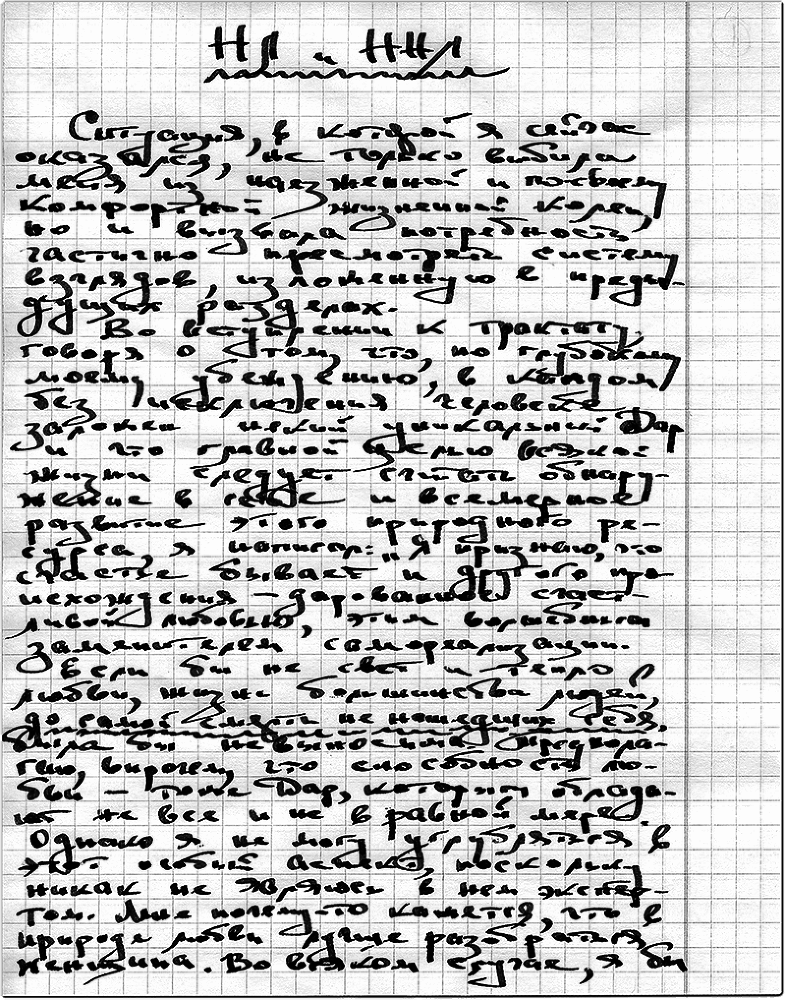 НЛ и ННЛ
Ситуация, в которой я сейчас
оказался, не только выбила
меня из наезженной и по-своему
комфортной жизненной колеи,
но и вызвала потребность
частично пересмотреть систему
взглядов, изложенную в преды-
дущих разделах.
Во вступлении к трактату,
говоря о том, что, по глубокому
моему убеждению, в каждом
без исключения человеке
заложен некий уникальный Дар
и что главной целью всякой
жизни следует считать обнару-
жение в себе и всемерное
развитие этого природного ре-
сурса, я написал: „Я признаю, что
счастье бывает и другого про-
исхождения – дарованное счаст-
ливой любовью, этим волшебным
заменителем самореализации.
Если бы не свет и тепло
любви, жизнь большинства людей,
до самой смерти не нашедших себя,
была бы невыносима. Предпола-
гаю, впрочем, что способность лю-
бви – тоже Дар, которым облада-
ют не все и не в равной мере.
Однако я не могу углубляться в
этот особый аспект, поскольку
никак не являюсь в нем экспер-
том. Мне почему-то кажется, что в
природе любви лучше разобраться
женщина. Во всяком случае, я бы